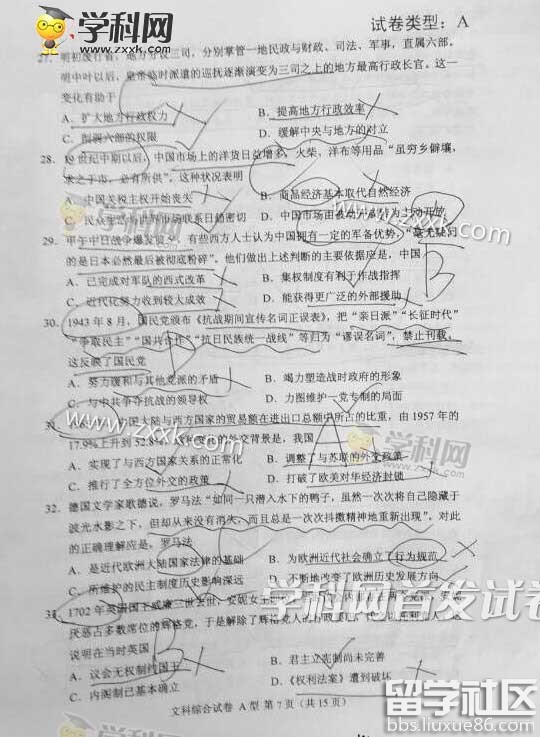 学科网
www.zxxk.com
试卷类型：A
27. 明初废行省，地方分设三司，分别掌管一地民政与财政、司法、军事，直属六部。
明中叶以后，皇帝临时派遣的巡抚逐渐演变为三司之上的地方最高行政长官。这一
变化有助于
A．扩大地方行政权力 B．提高地方行政效率
C．削弱六部的权限 D．缓解中央与地方的对立
28. 19世纪中期以后，中国市场上的洋货日益增多，火柴、洋布等用品“虽穷乡僻壤，
求之于市，必有所供”。这种状况表明
A．中国关税主权开始丧失 B．商品经济基本取代自然经济
C．民众生活与世界市场联系日趋密切 D．中国市场由被动
29. 甲午中日战争爆发 ，有些西方人士认为中国拥有一定的军备优势，“毫无疑问
的是日本必然最后被彻底粉碎”。他们做出上述判断的主要依据应是，中国
A．已完成对军队的西式改革 B．集权制度有利于作战指挥
C．近代化努力收到较大成效 D．能获得更广泛的外部援助
30. 1943年8月，国民党颁布《抗战期间宣传名词正误表》，把“亲日派”“长征时代”
“争取民主”“国共合作”“抗日民族统一战线”等归为“谬误名词”，禁止刊载。
这反映了国民党
A．努力缓和与其他党派的矛盾 B．竭力塑造战时政府的形象
C．与中共争夺抗战的领导权 D．力图维护一党专制的局面
31. 中国大陆与西方国家的贸易额在进出口总额中所占的比重，由1957年的
17.9%上升到52.8% 变化的外交背景是，我国
A．实现了与西方国家关系的正常化 B．调整了与苏联的外交政策
C．推行了全方位外交的政策 D．打破了欧美对华经济封锁
32. 德国文学家歌德说，罗马法“如同一只潜入水下的鸭子，虽然一次次将自己隐藏于
波光水影之下，但却从来没有消失，而且总是一次次抖擞精神地重新出现”。对此
的正确理解应是，罗马法
A．是近代欧洲大陆国家法律的基础 B．为欧洲近代社会确立了行为规范
C．所维护的民主制度历史影响深远 D．不断地改变了欧洲历史发展方向
33. 1702年英国国王威廉三世去世，安妮女王
厌恶占多数席位的辉格党，于是解除了辉格党人的行政
说明在当时英国
A．议会无权制约国王 B．君主立宪制尚未完善
C．内阁制已基本确立 D．《权利法案》遭到破坏
文科综合试卷 A型 第7页（共15页）
学科网首发试卷
留学社区
bbs.liuxue86.com